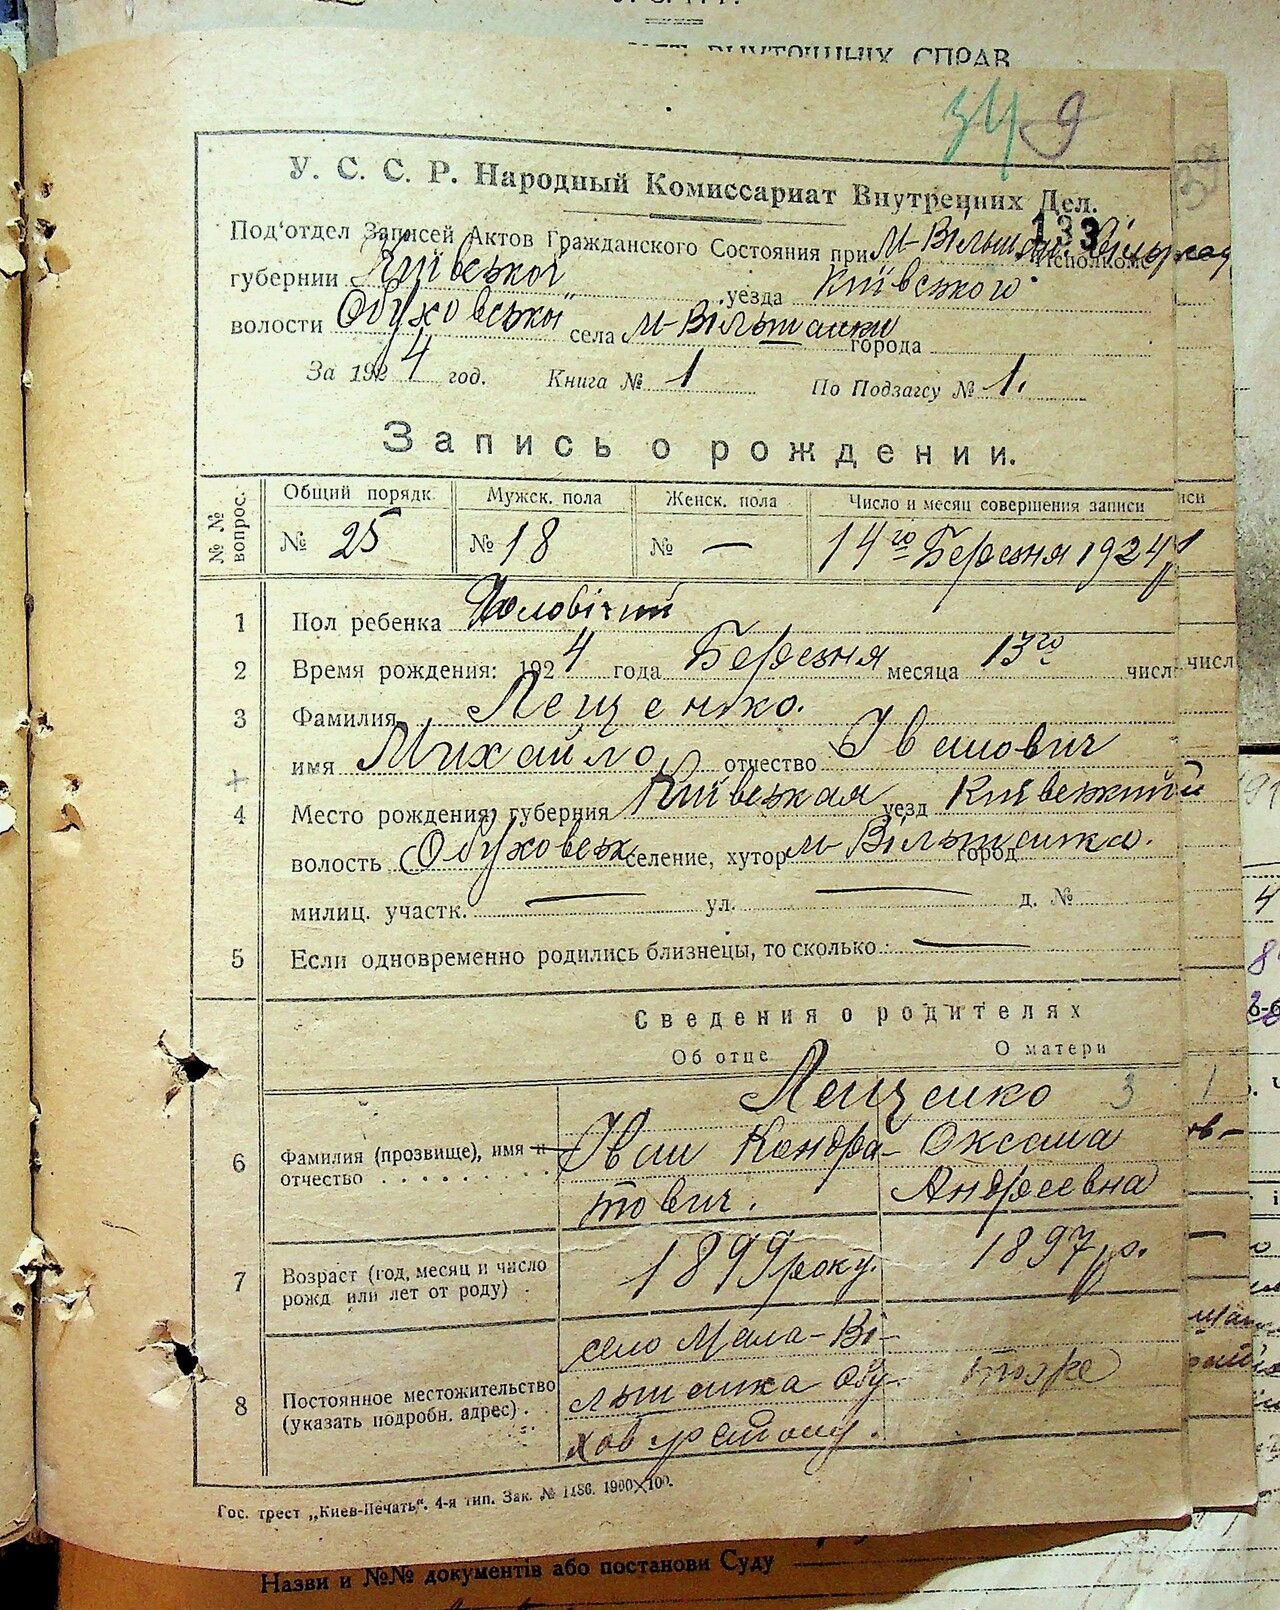 ВНУТРЕШНІХ СПРАВ
34 9
У. С. С. Р. Народный Комиссариат Внутрених Дел.
133
Под'отдел Записей Актов Гражданского Состояния при М-Вільшан. Исполкоме
губернии Київської уезда Київського
волости Обуховської села М-Вільшанки города
За 1924 год. Книга № 1 По Подзагсу № 1.
Запись о рождении.
№ № вопрос. Общий порядк. Мужск. пола Женск. пола Число и месяц совершения записи
№ 25 № 18 № — 14го Березня 1924 р
1 Пол ребенка Чоловічий
2 Время рождения: 1924 года Березня месяца 13го числ
3 Фамилия Лещенко.
имя Михайло отчество Іванович
4 Место рождения: губерния Київська уезд Київський
волость Обуховськ селение, хутор М-Вільшанка. город
милиц. участк. — ул. — д. №
5 Если одновременно родились близнецы, то сколько: —
Сведения о родителях
Об отце О матери
Лещенко 3
6 Фамилия (прозвище), имя и Иван Кондра- Оксана
отчество тович. Андреевна
7 Возраст (год, месяц и число рожд. или лет от роду) 1899 року. 1897 р.
село Мала-Ві-
8 Постоянное местожительство льшанка Обу- тоже
(указать подробн. адрес) хов району.
Гос. трест „Киев-Печать". 4-я тип. Зак. № 1486. 1900×100.
Назви и №№ документів або постанови Суду